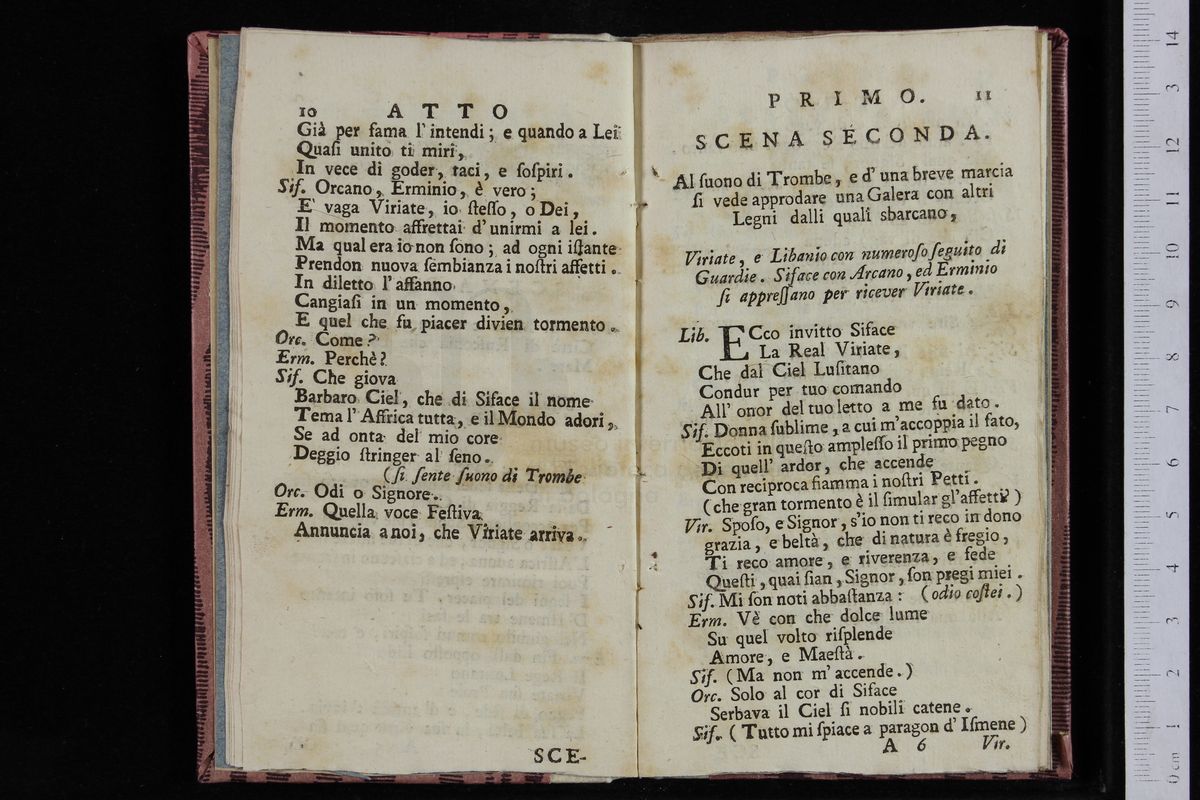 10 ATTO
Già per fama l' intendi; e quando a Lei
Quaſi unito ti miri,
In vece di goder, taci, e ſoſpiri.
Sif. Orcano, Erminio, è vero;
E' vaga Viriate, io ſteſſo, o Dei,
Il momento affrettai d'unirmi a lei.
Ma qual era io non ſono; ad ogni iſtante
Prendon nuova ſembianza i noſtri affetti.
In diletto l'affanno
Cangiaſi in un momento,
E quel che fu piacer divien tormento.
Orc. Come?
Erm. Perchè?
Sif. Che giova
Barbaro Ciel, che di Siface il nome
Tema l'Affrica tutta, e il Mondo adori,
Se ad onta del mio core
Deggio ſtringer al ſeno.
(ſi ſente ſuono di Trombe
Orc. Odi o Signore.
Erm. Quella voce Feſtiva
Annuncia a noi, che Viriate arriva.
SCE-
PRIMO. 11
SCENA SECONDA.
Al ſuono di Trombe, e d' una breve marcia
ſi vede approdare una Galera con altri
Legni dalli quali sbarcano,
Viriate, e Libanio con numeroſo ſeguito di
Guardie. Siface con Arcano, ed Erminio
ſi appreſſano per ricever Viriate.
Lib. ECco invitto Siface
La Real Viriate,
Che dal Ciel Luſitano
Condur per tuo comando
All' onor del tuo letto a me fu dato.
Sif. Donna ſublime, a cui m'accoppia il fato,
Eccoti in queſto ampleſſo il primo pegno
Di quell' ardor, che accende
Con reciproca fiamma i noſtri Petti.
(che gran tormento è il ſimular gl'affetti!)
Vir. Spoſo, e Signor, s'io non ti reco in dono
grazia, e beltà, che di natura è fregio,
Ti reco amore, e riverenza, e fede
Queſti, quai ſian, Signor, ſon pregi miei.
Sif. Mi ſon noti abbaſtanza: (odio coſtei.)
Erm. Vè con che dolce lume
Su quel volto riſplende
Amore, e Maeſtà.
Sif. (Ma non m'accende.)
Orc. Solo al cor di Siface
Serbava il Ciel ſi nobili catene.
Sif. (Tutto mi ſpiace a paragon d' Iſmene)
A 6 Vir.
0 cm 1 2 3 4 5 6 7 8 9 10 11 12 13 14